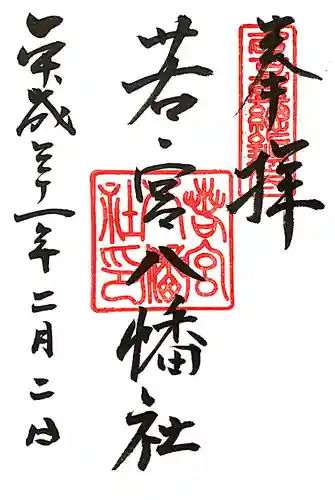 奉拝
若宮八幡社
平成二十一年二月二日
若宮
八幡
社印